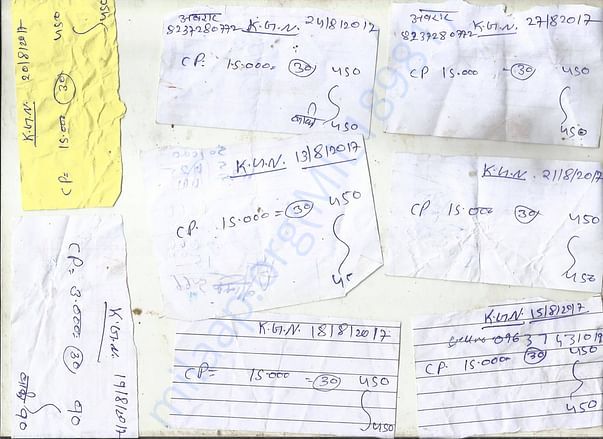 K.G.N. 20/8/2017
CP = 15.000 (30) 450
450
अबरार K.G.N. 24/8/2017
8237280772
CP. 15.000 = (30) 450
450
अबरार K.G.N. 27/8/2017
8237280772
CP 15.000 - (30) 450
450
K.G.N. 13/8/2017
CP. 15.000 = (30) 450
K.G.N. 21/8/2017
CP 15.000 (30) 450
450
K.G.N. 19/8/2017
CP = 3.000 = (30) 90
90
K.G.N. 18/8/2017
CP = 15.000 = (30) 450
450
K.G.N. 15/8/2017
CP. 15.000 (30) 450
450